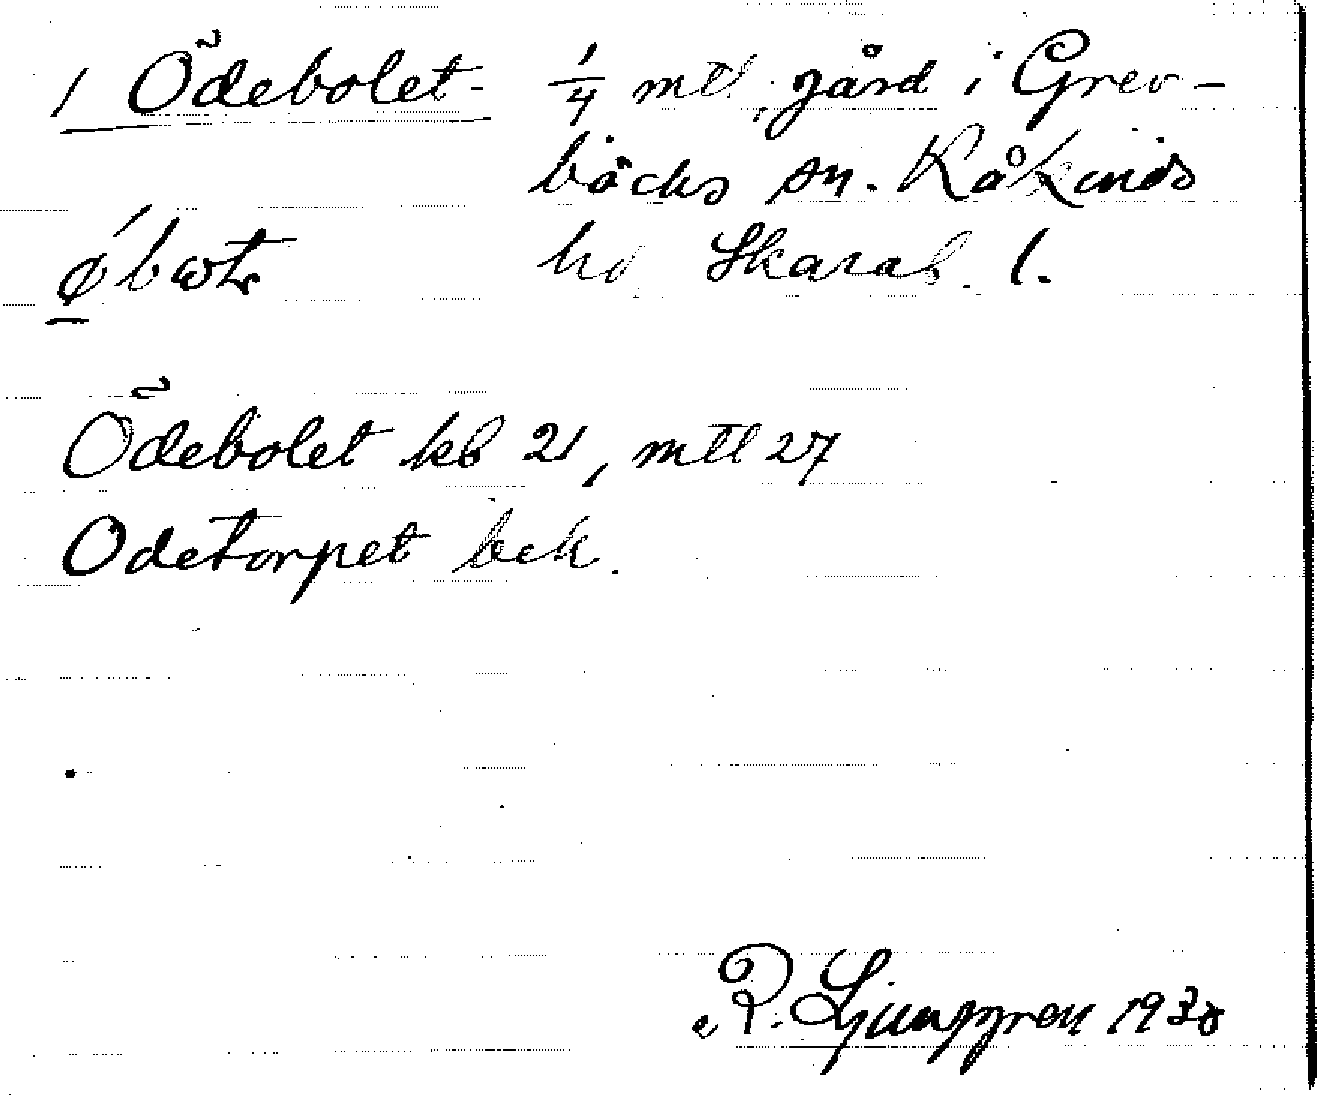 1 Ödebolet- 1/4 mtl, gård i Grev-
bäcks sn. Kåkinds
hd Skarab. l.
Ödebolet kb 21, mtl 27
Ödetorpet bek.
R. Ljunggren 1930